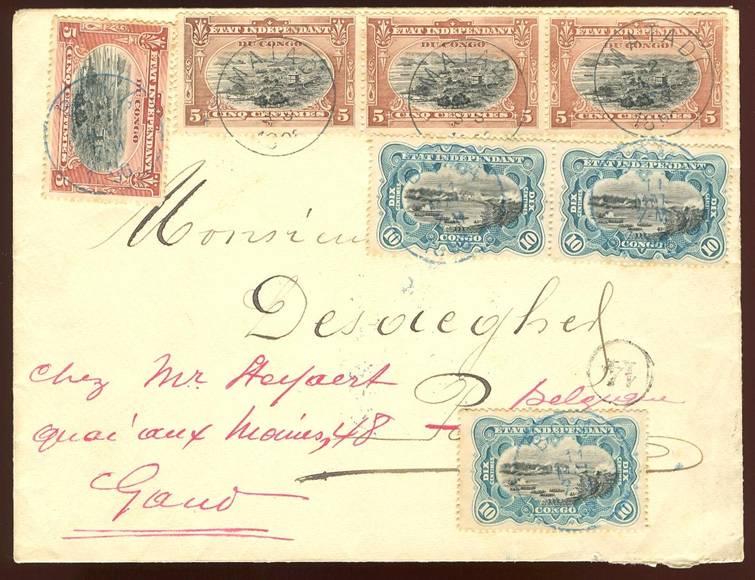 ETAT INDEPENDANT
DU CONGO
5 CINQ CENTIMES 5
ETAT INDEPENDANT
DU CONGO
5 CINQ CENTIMES 5
MATADI
ETAT INDEPENDANT
DU CONGO
5 CINQ CENTIMES 5
MATADI
ETAT INDEPENDANT
DU CONGO
5 CINQ CENTIMES 5
MATADI
ETAT INDEPENDANT
DIX CENTIMES
DU
10 CONGO 10
ETAT INDEPENDANT
DIX CENTIMES
DU
10 CONGO 10
Monsieur
Desaeghel
chez Mr Heyaert
Belgique
quai aux Moines, 48
Gand
ETAT INDEPENDANT
DIX CENTIMES
DU
10 CONGO 10